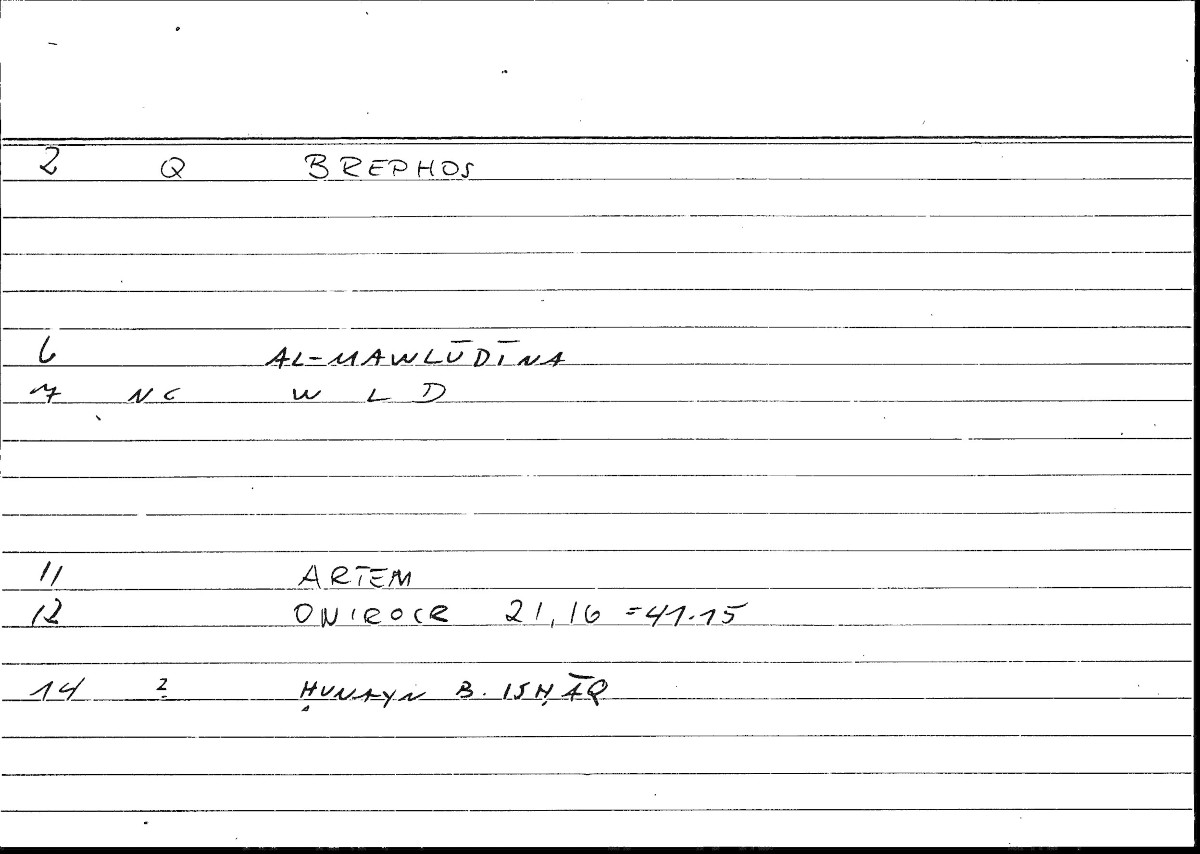 2 Q BREPHOS
6 AL-MAWLŪDĪNA
7 NC W L D
11 ARTEM
12 ONIROCR 21,16 =41.15
14 2 ḤUNAYN B. ISḤĀQ